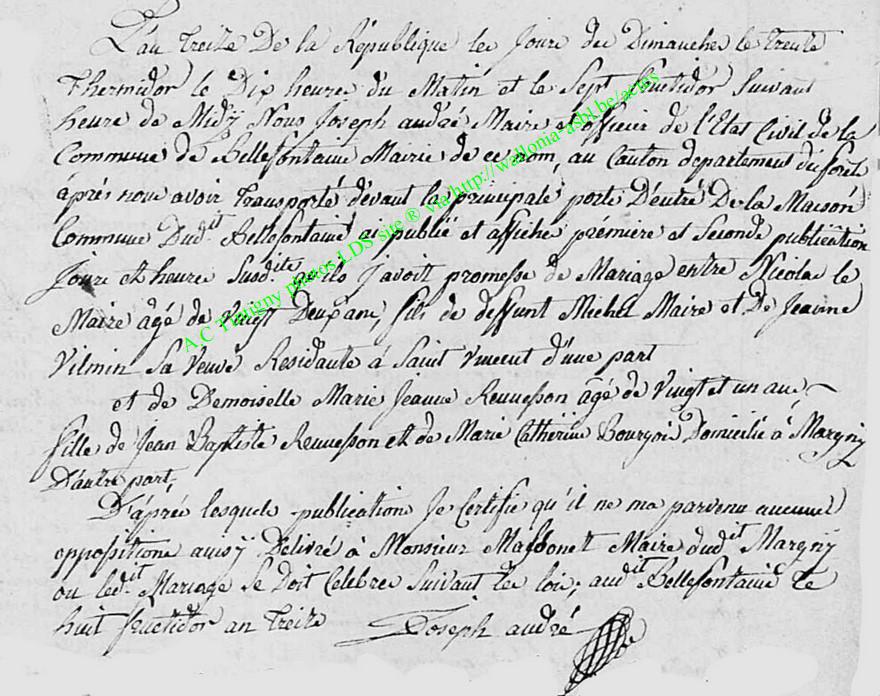 L'an treize De la République les Jours de Dimanches le trente
Thermidor le Dix heures du Matin et le Sept fructidor Suivant
heure de Midy Nous Joseph andré Maire et officier de l'Etat Civil de la
Commune de Bellefontaine Mairie de ce nom, au Canton departement du forêt
aprés nous avoir Transporté devant la principale porte D'entré De la Maison
Commune Dudit Bellefontaine ai publié et affiché prémière et Seconde publication
Jours et heure Susdite qu'ils j'avoit promesse de Mariage entre Nicolas le
Maire âgé de Vingt Deux ans, fils de deffunt Michel Maire et De Jeanne
Vilmin Sa Veuve Residante à Saint Vincent d'une part
et de Demoiselle Marie Jeanne Rennesson âgé de Vingt et un ans
fille de Jean Baptiste Rennesson et de Marie Catherine Bourgois Domicilié à Margny
D'autre part,
D'après lesquels publication Je Certifie qu'il ne ma parvenu aucune
oppositions aussy Délivré à Monsieur Massonet Maire dudit Margny
ou ledit Mariage Se Doit Celebrer Suivant les lois; audit Bellefontaine le
huit fructidor an treize Joseph andré
A.C Margny photos LDS site ® via http://wallonia-asbl.be/actes